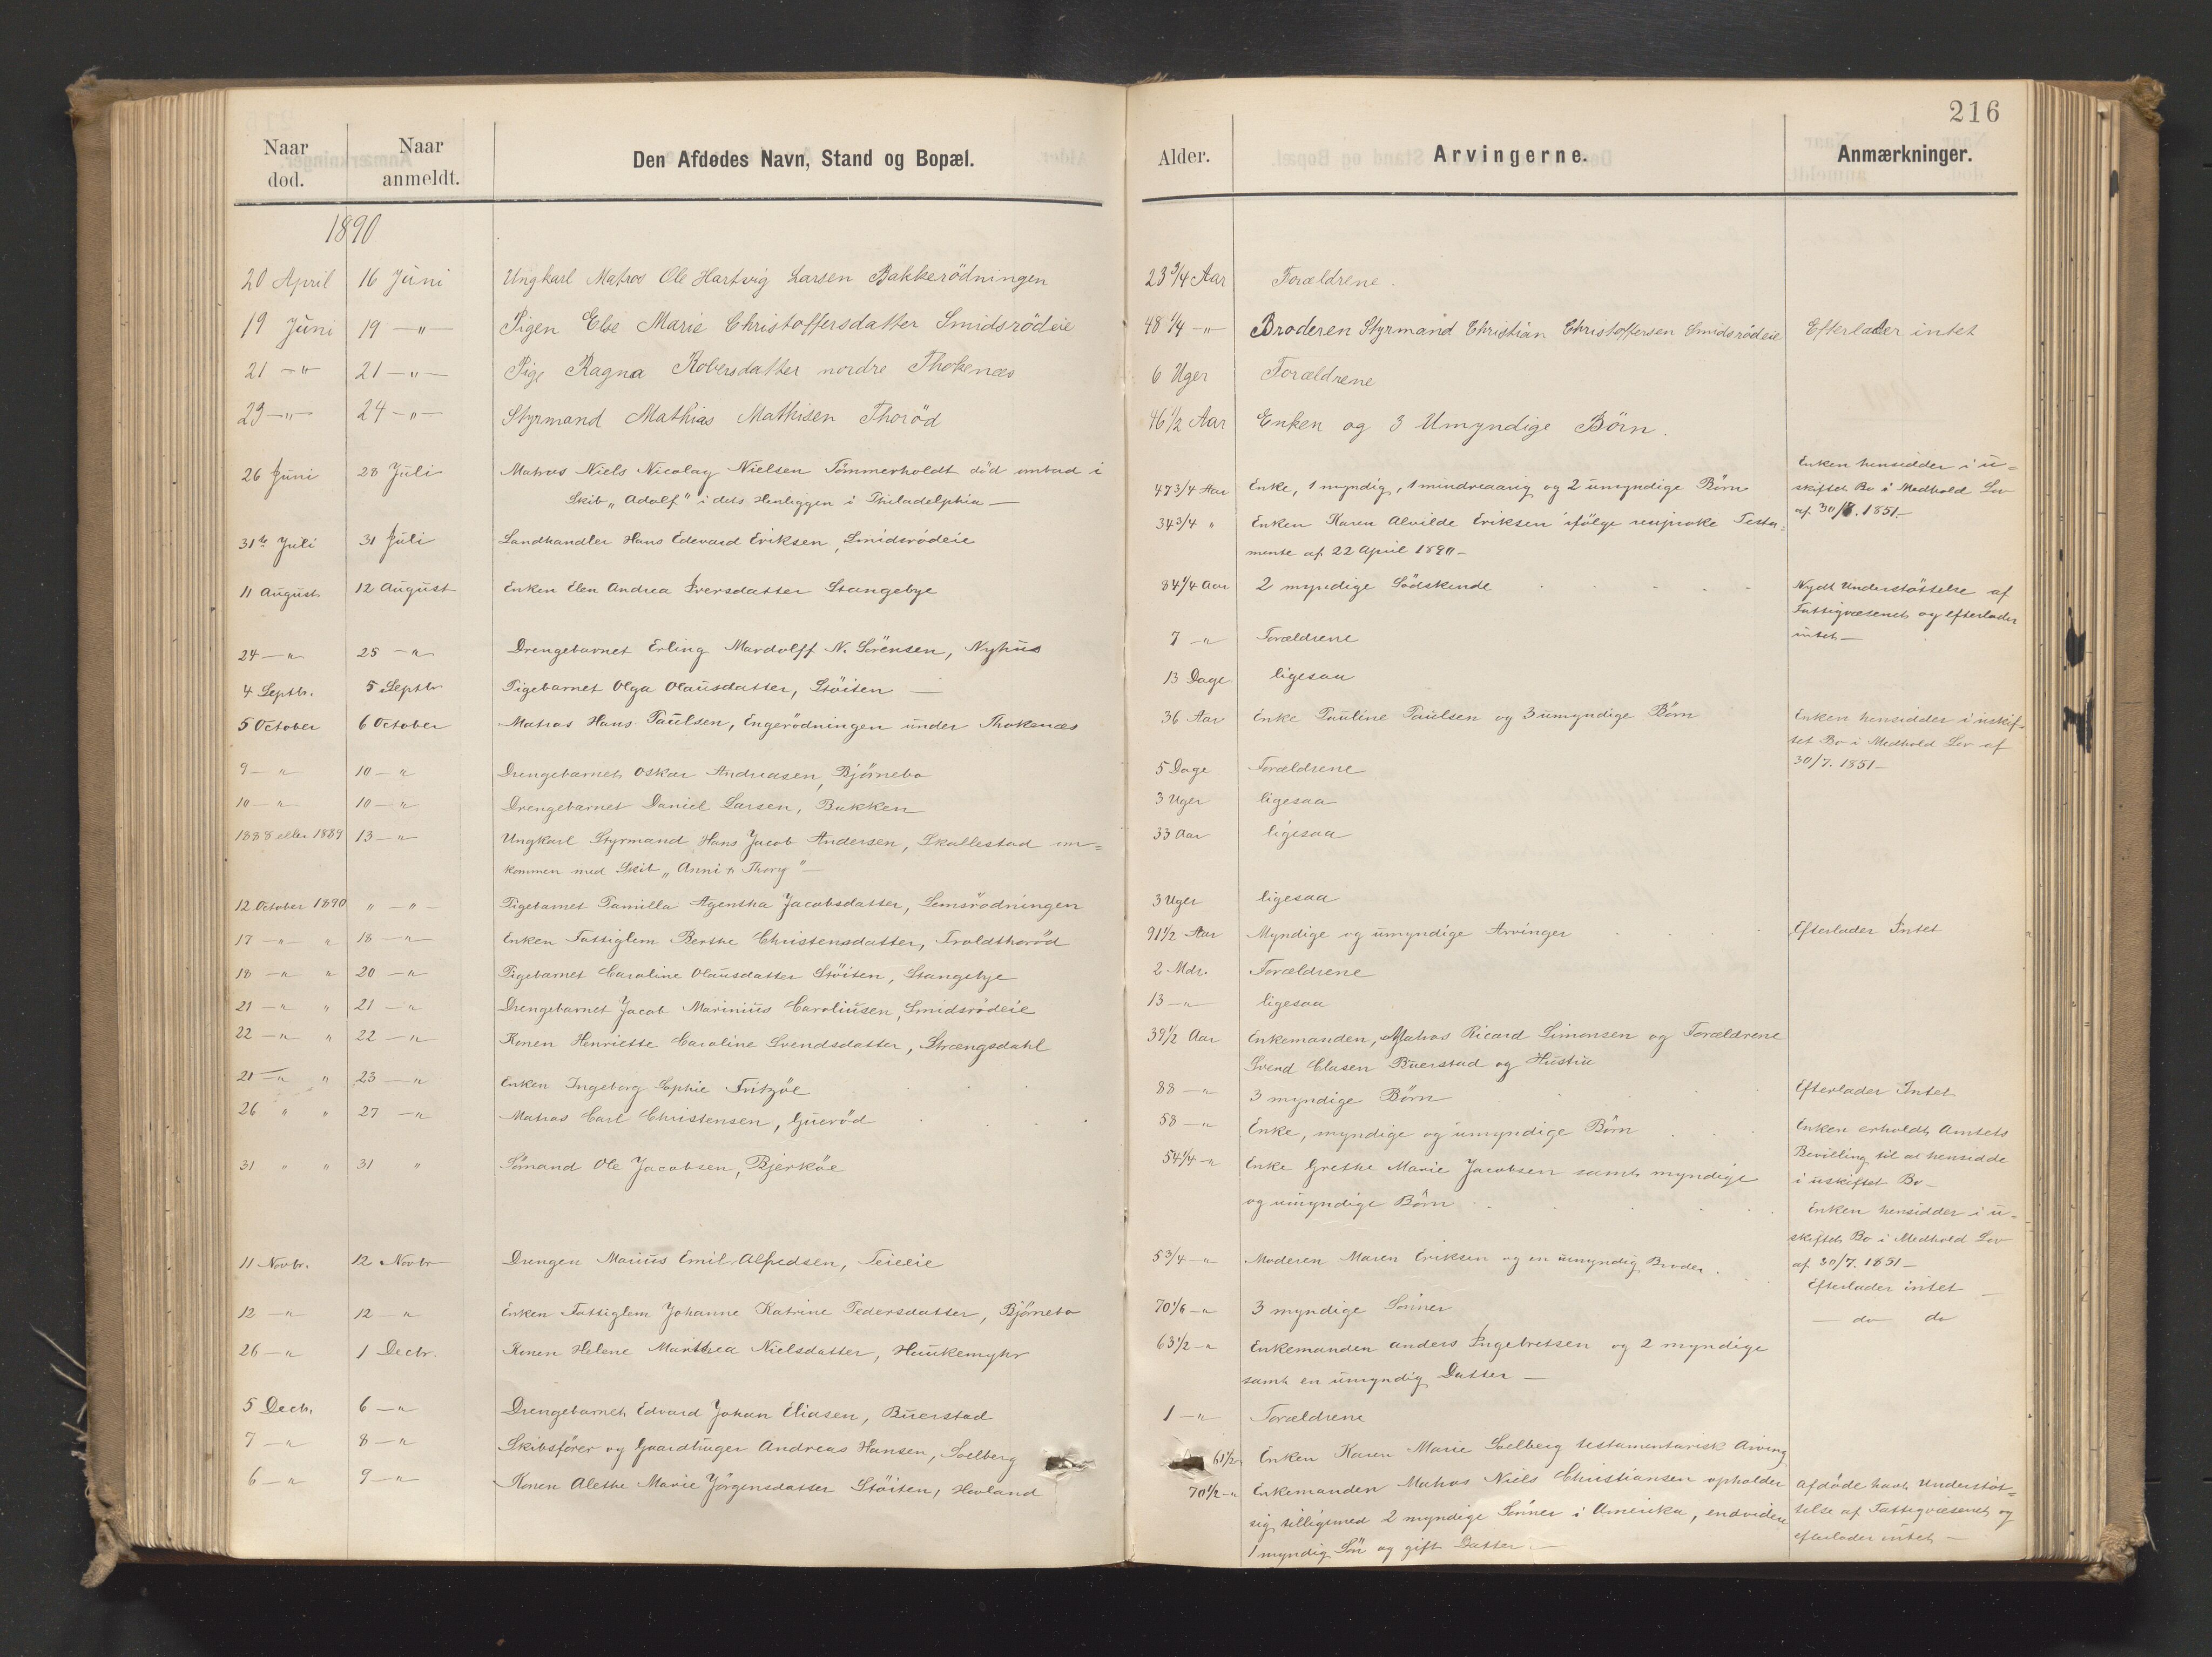 216
Naar død. Naar anmeldt. Den Afdødes Navn, Stand og Bopæl. Alder. Arvingerne. Anmærkninger.
1890
20 April 16 Juni Ungkarl Matros Ole Hartvig Larsen Bakkerödningen 23 3/4 Aar Forældrene.
19 Juni 19 -"- Pigen Else Marie Christoffersdatter Smidsrödeie 48 1/4 -"- Broderen Styrmand Christian Christoffersen Smidsrödeie Efterlader intet
21 -"- 21 -"- Pige Ragna Robersdatter nordre Thokenæs 6 Uger Forældrene
23 -"- 24 -"- Styrmand Mathias Mathisen Thoröd 46 1/2 Aar Enken og 3 Umyndige Börn.
26 Juni 28 Juli Matros Niels Nicolay Nielsen Tömmerholdt död ombord i
Skib „Adolf" i dets Henliggen i Philadelphia — 47 3/4 Aar Enke, 1 myndig, 1 mindreaarig og 2 umyndige Börn Enken hensidder i u=
skiftet Bo i Medhold Lov
af 30/7. 1851.—
31te Juli 31 Juli Landhandler Hans Edevard Eriksen, Smidsrödeie 34 3/4 " Enken Karen Alvilde Eriksen ifölge resiproke Testa-
mente af 22 April 1890 —
11 August 12 August Enken Elen Andrea Iversdatter Stangebye 84 1/4 Aar 2 myndige Södskende Nydt Understöttelse af
Fattigvæsenet og efterlader
intet —
24 — " 25 — " Drengebarnet Erling Mardolff N. Sörensen, Nyhus 7 — " Forældrene
4 Septbr. 5 Septbr Pigebarnet Olga Olausdatter, Stöiten — 13 Dage ligesaa
5 October 6 October Matros Hans Paulsen, Engerödningen under Thokenæs 36 Aar Enke Pauline Paulsen og 3 umyndige Börn Enken hensidder i uskif-
tet Bo i Medhold Lov af
30/7. 1851 —
9 — " 10 — " Drengebarnet Oskar Andreasen, Björnebo 5 Dage Forældrene
10 — " 10 — " Drengebarnet Daniel Larsen, Bakken 3 Uger ligesaa
1888 eller 1889 13 — " Ungkarl Styrmand Hans Jacob Andersen, Skallestad om= 33 Aar ligesaa
kommen med Skib „Anni & Thory" —
12 October 1890 " — " — Pigebarnet Pamilla Agentha Jacobsdatter, Lemsrödningen 3 Uger ligesaa
17 — " " 18 — " Enken Fattiglem Berthe Christensdatter, Troldthoröd 91 1/2 Aar Myndige og umyndige Arvinger Efterlader Intet
18 — " " 20 — " Pigebarnet Caroline Olausdatter Stöiten, Stangebye 2 Mdr. Forældrene
21 — " " 21 — " Drengebarnet Jacob Marinius Caroliusen, Smidsrödeie 13 — " ligesaa
22 — " " 22 — " Konen Henriette Caroline Svendsdatter, Strængsdahl 39 1/2 Aar Enkemanden, Matros Ricard Simonsen og Forældrene
Svend Clasen Buerstad og Hustru
21 — " " 23 — " Enken Ingeborg Sophie Fritzöe 88 — " 3 myndige Börn Efterlader Intet
26 " " 27 — " Matros Carl Christensen, Gueröd 58 — " Enke, myndige og umyndige Börn Enken erholdt Amtets
Bevilling til at hensidde
i uskiftet Bo —
31 " " 31 " Sömand Ole Jacobsen, Bjerköe 54 1/4 — " Enke Grethe Marie Jacobsen samt myndige
og umyndige Börn Enken hensidder i u=
skiftet Bo i Medhold Lov
af 30/7. 1851 —
11 Novbr. 12 Novbr Drengen Marius Emil Alfredsen, Teieeie 5 3/4 — " Moderen Maren Eriksen og en umyndig Broder. Efterlader intet —
12 — " 12 — " Enken Fattiglem Johanne Katrine Pedersdatter, Björnebo 70 1/6 — " 3 myndige Sönner — do do
26 — " 1 Decbr. Konen Helene Marthea Nielsdatter, Haukemyhr 63 1/2 — " Enkemanden Anders Ingebretsen og 2 myndige
samt en umyndig Datter —
5 Decb. 6 — " Drengebarnet Edvard Johan Eliasen, Buerstad 1 — " Forældrene
7 — " 8 — " Skibsförer og Gaardbruger Andreas Hansen, Solberg 61 1/2 Enken Karen Marie Solberg testamentarisk Arving
6 — " 9 — " Konen Alethe Marie Jörgensdatter Stöiten, Hovland 70 1/2 — " Enkemanden Matros Niels Christiansen opholder Afdöde havt Understöt=
sig tilligemed 2 myndige Sönner i Amerika, endvidere telse af Fattigvæsenet og
1 myndig Sön og gift Datter — efterlader intet —